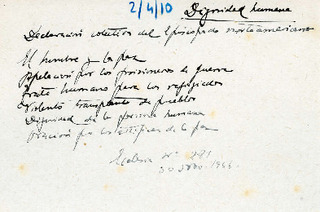 2/4/10
Dignidad humana
Declaración colectiva del Episcopado norteamericano
El hombre y la paz
Apelación por los prisioneros de guerra
Trato humano para los refugiados
Violento transplante de pueblos
Dignidad de la persona humana
Oración por los artífices de la paz
Ecclesia Nº 291